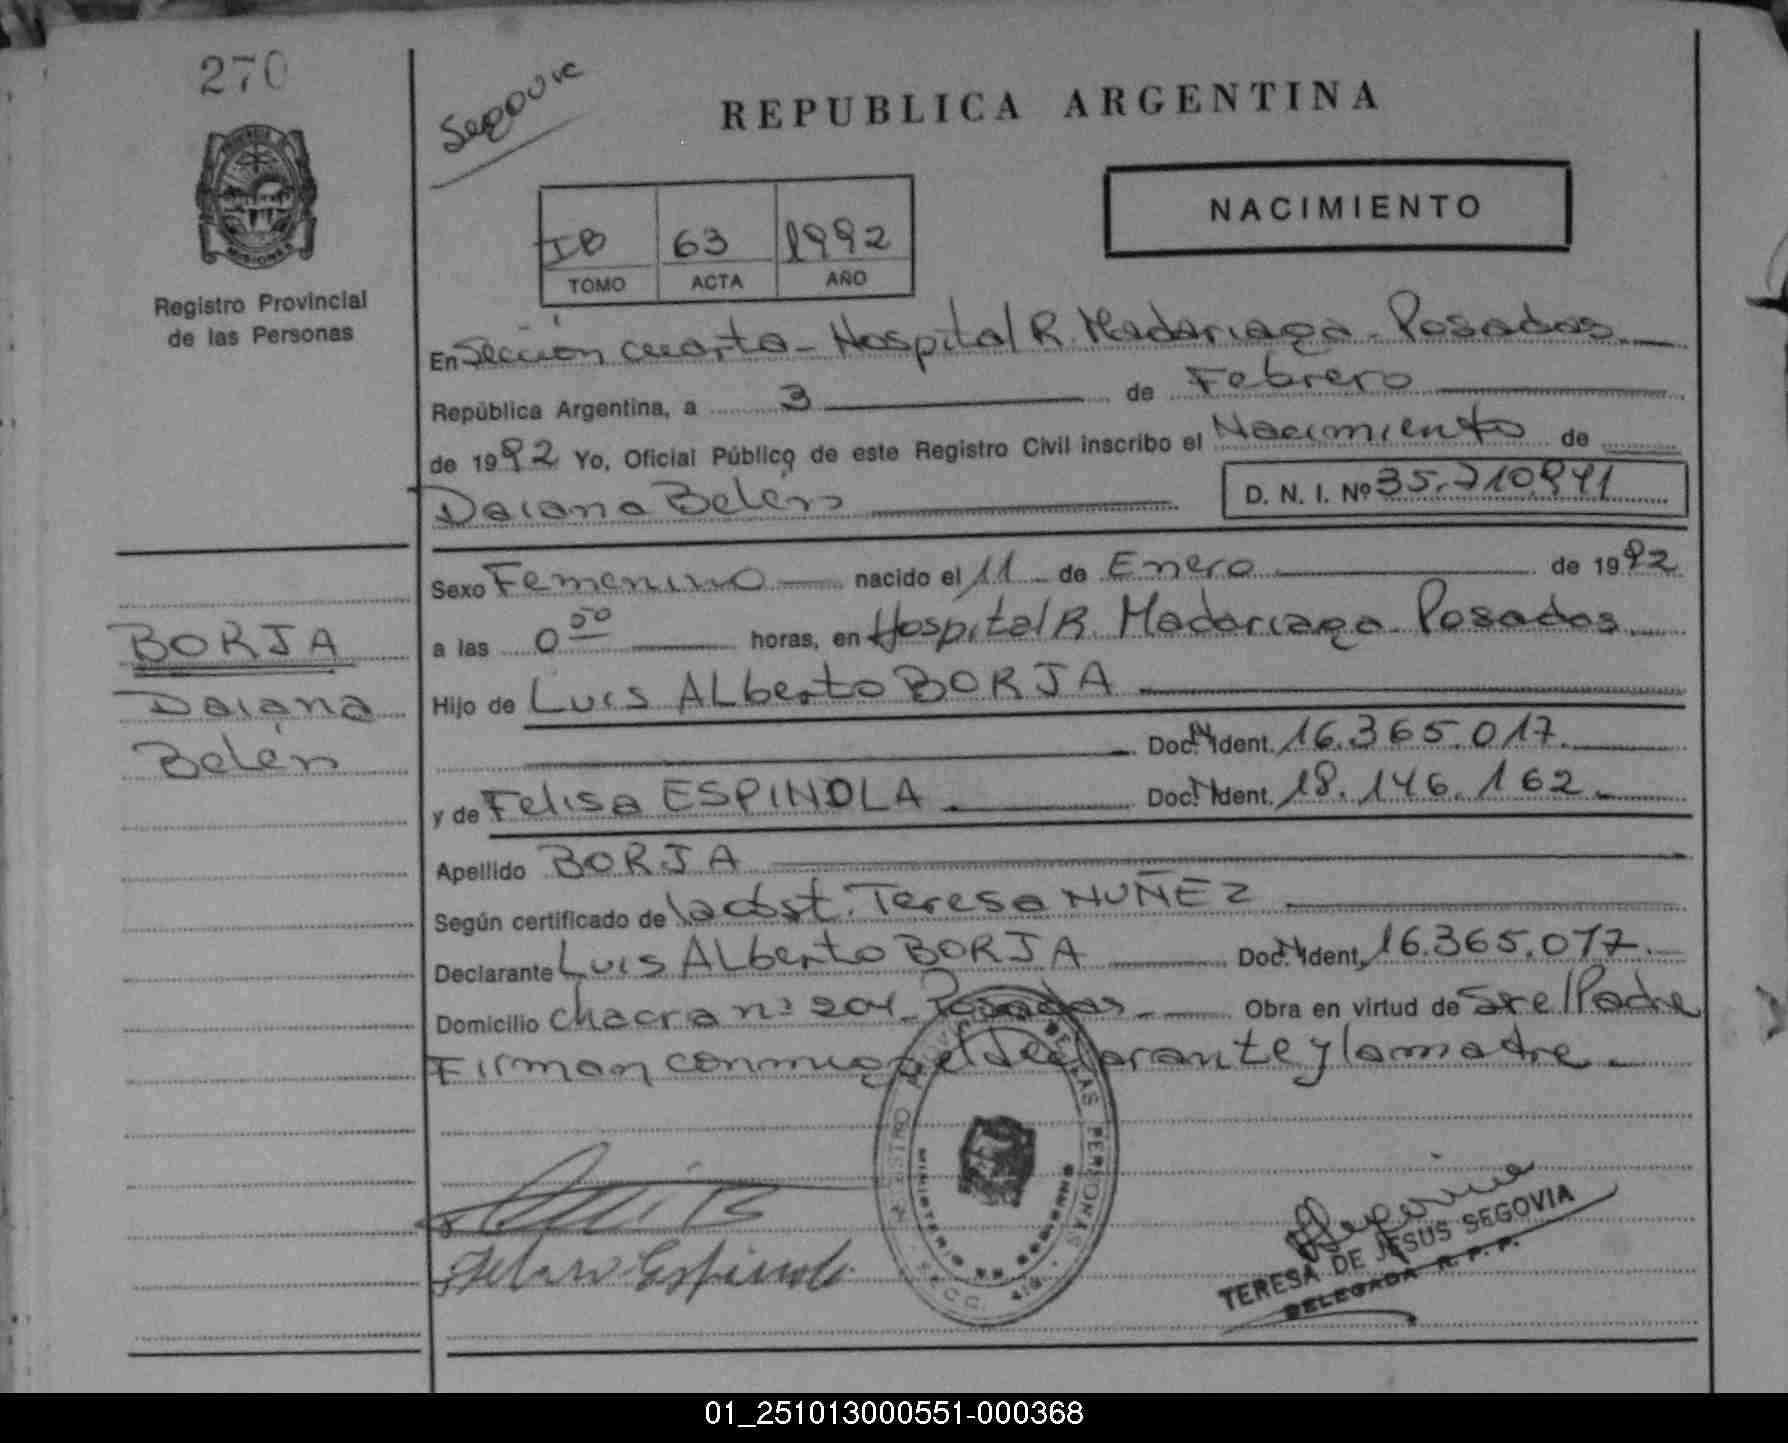 270
Segovia
REPUBLICA ARGENTINA
NACIMIENTO
IB 63 1992
TOMO ACTA AÑO
Registro Provincial
de las Personas
En Sección cuarta - Hospital R. Madariaga - Posadas
República Argentina, a 3 de Febrero
de 1992 Yo, Oficial Público de este Registro Civil inscribo el Nacimiento de
Daiana Belén D. N. I. Nº 35.710.941
Sexo Femenino nacido el 11 de Enero de 1992
a las 0 50 horas, en Hospital R. Madariaga Posadas
BORJA
Daiana
Belén
Hijo de Luis ALberto BORJA
Doc. N. Ident. 16.365.017.
y de Felisa ESPINOLA Doc. N. Ident. 18.146.162.
Apellido BORJA
Según certificado de la obst. Teresa NUÑEZ
Declarante Luis ALberto BORJA Doc. N. Ident. 16.365.017.
Domicilio chacra nº 204 - Posadas - Obra en virtud de Ser el Padre
Firman conmigo el declarante y la madre.
REGISTRO PROVINCIAL DE LAS PERSONAS
MINISTERIO DE GOBIERNO
Espinola
Segovia
TERESA DE JESUS SEGOVIA
DELEGADA R. P. P.
01_251013000551-000368